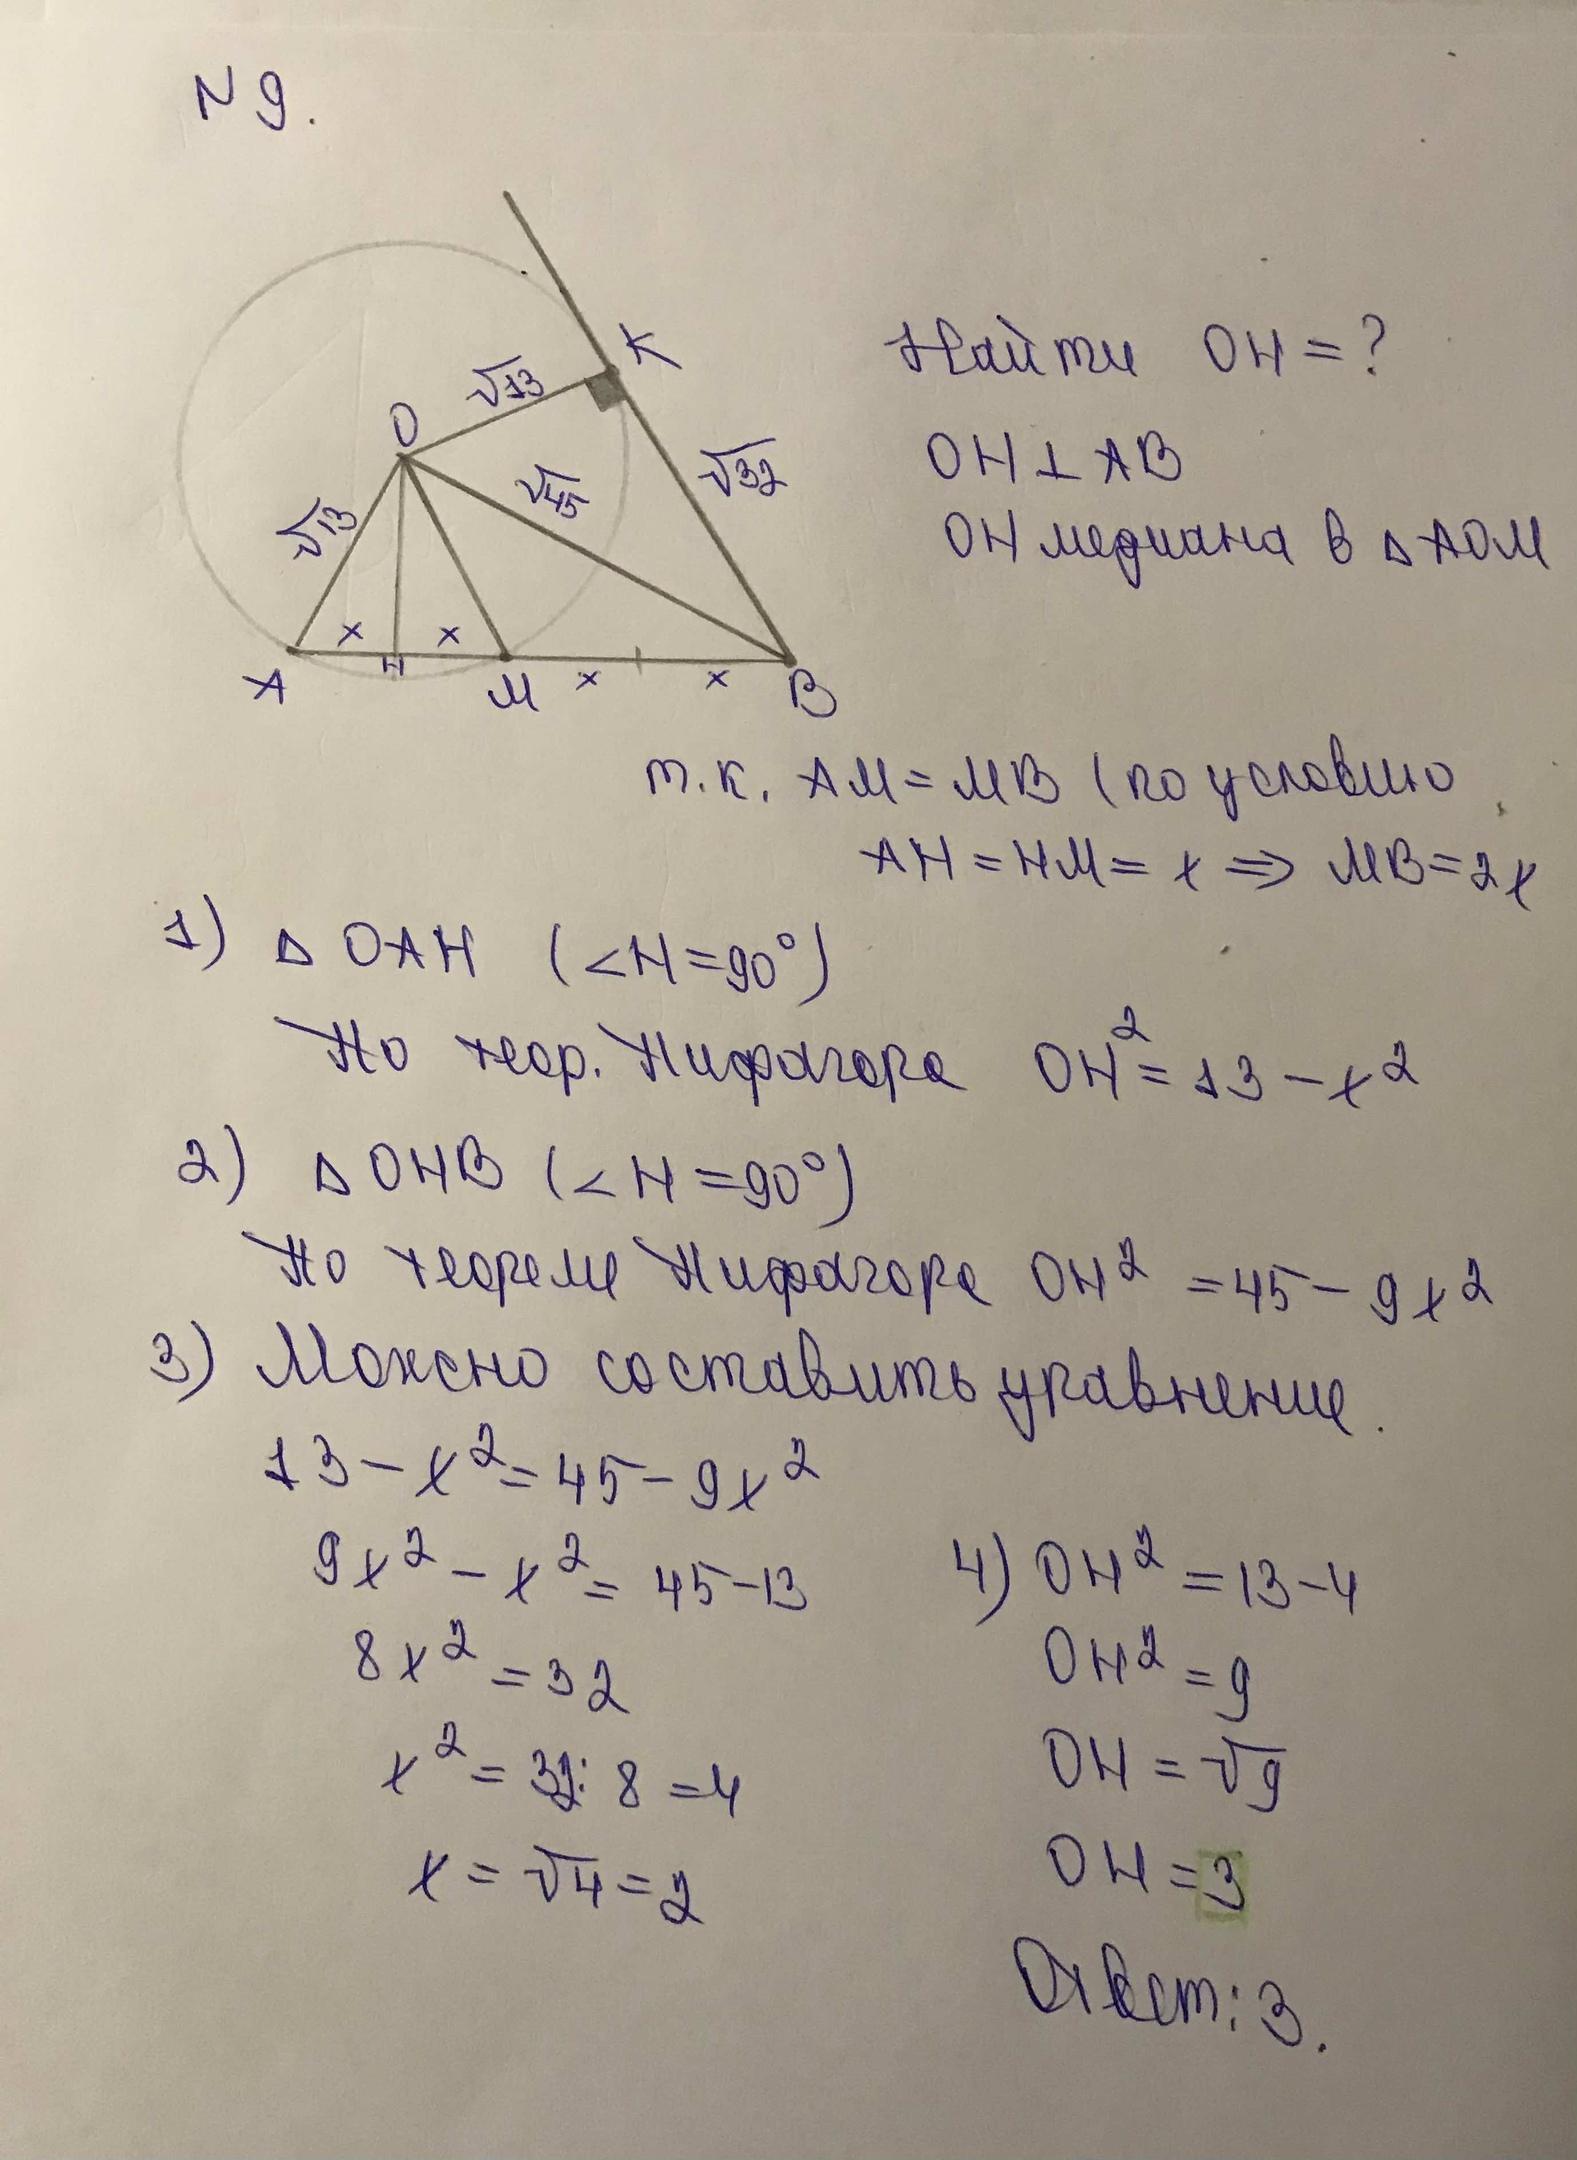 N 9.
K
√13
O
√32
√45
√13
x
x
A
H
M
x
x
B
Найти OH = ?
OH ⊥ AB
OH медиана в △ AOM
т.к. AM = MB (по условию
AH = HM = x ⇒ MB = 2x
1) △ OAH (∠H = 90°)
По теор. Пифагора OH² = 13 - x²
2) △ OHB (∠H = 90°)
По теореме Пифагора OH² = 45 - 9x²
3) Можно составить уравнение.
13 - x² = 45 - 9x²
9x² - x² = 45 - 13
8x² = 32
x² = 32 : 8 = 4
x = √4 = 2
4) OH² = 13 - 4
OH² = 9
OH = √9
OH = 3
Ответ: 3.